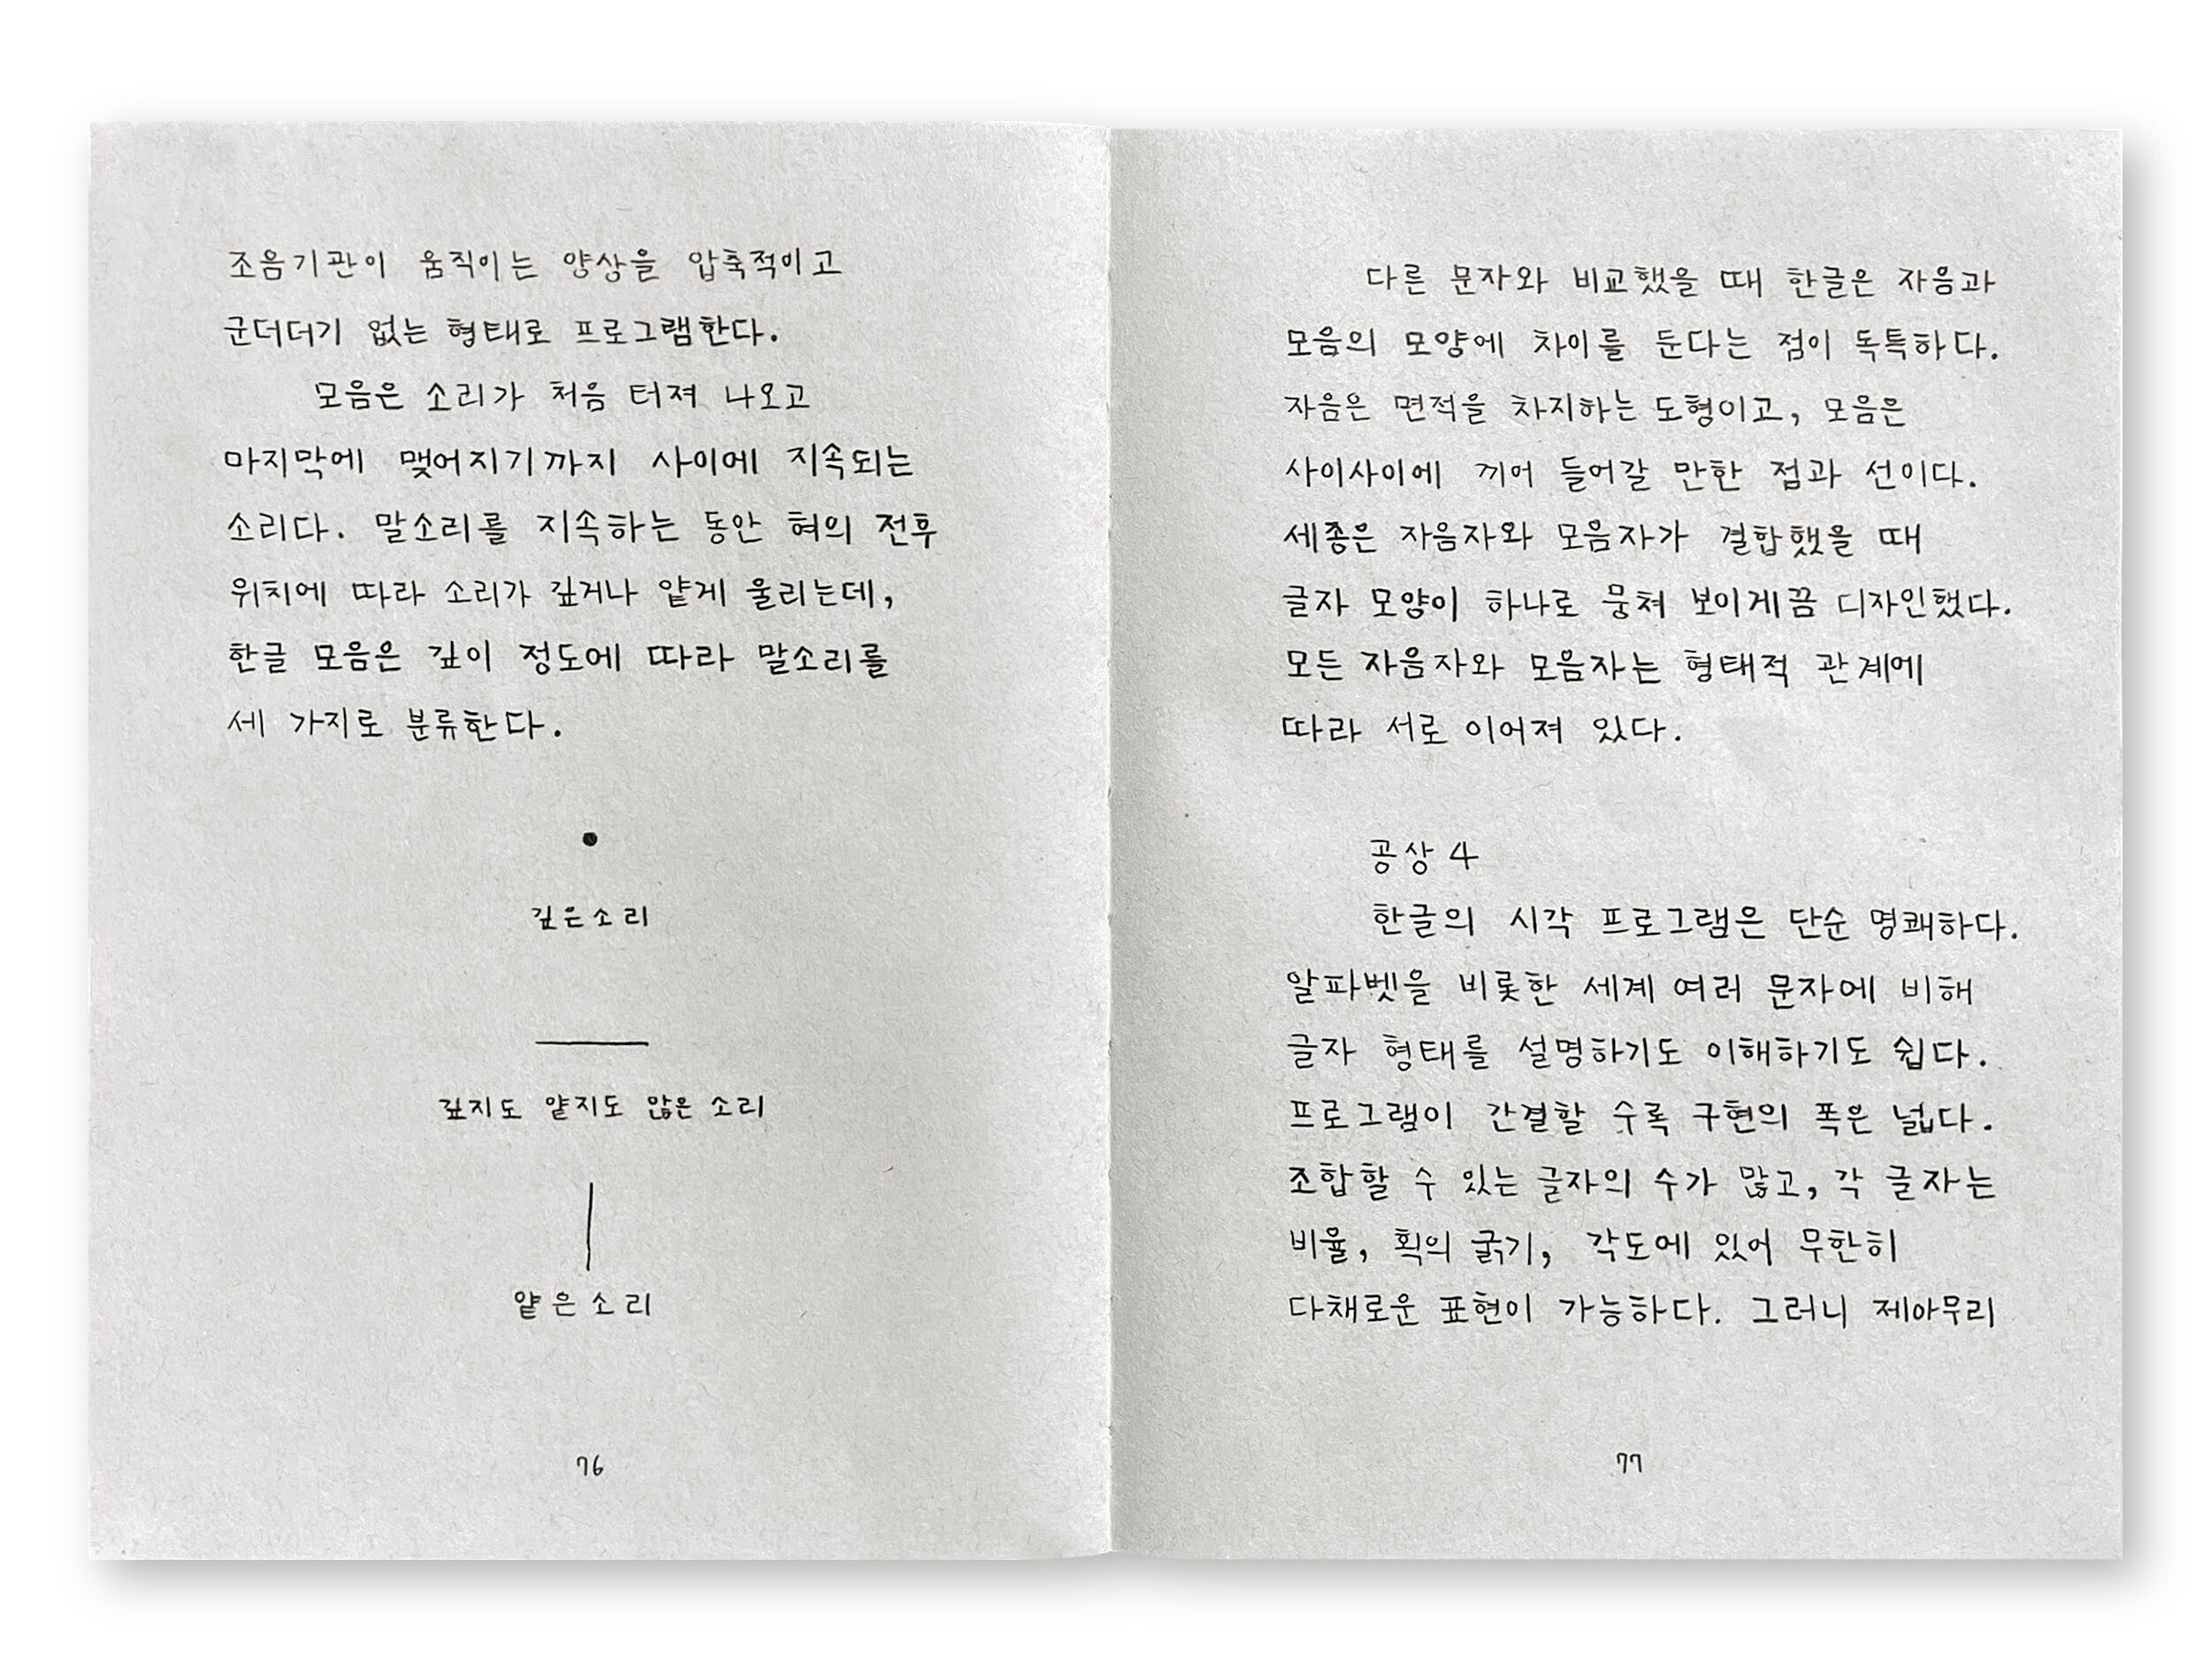 조음기관이 움직이는 양상을 압축적이고
군더더기 없는 형태로 프로그램한다.
모음은 소리가 처음 터져 나오고
마지막에 맺어지기까지 사이에 지속되는
소리다. 말소리를 지속하는 동안 혀의 전후
위치에 따라 소리가 깊거나 얕게 울리는데,
한글 모음은 깊이 정도에 따라 말소리를
세 가지로 분류한다.
깊은소리
깊지도 얕지도 않은 소리
얕은소리
76
다른 문자와 비교했을 때 한글은 자음과
모음의 모양에 차이를 둔다는 점이 독특하다.
자음은 면적을 차지하는 도형이고, 모음은
사이사이에 끼어 들어갈 만한 점과 선이다.
세종은 자음자와 모음자가 결합했을 때
글자 모양이 하나로 뭉쳐 보이게끔 디자인했다.
모든 자음자와 모음자는 형태적 관계에
따라 서로 이어져 있다.
공상 4
한글의 시각 프로그램은 단순 명쾌하다.
알파벳을 비롯한 세계 여러 문자에 비해
글자 형태를 설명하기도 이해하기도 쉽다.
프로그램이 간결할 수록 구현의 폭은 넓다.
조합할 수 있는 글자의 수가 많고, 각 글자는
비율, 획의 굵기, 각도에 있어 무한히
다채로운 표현이 가능하다. 그러니 제아무리
77